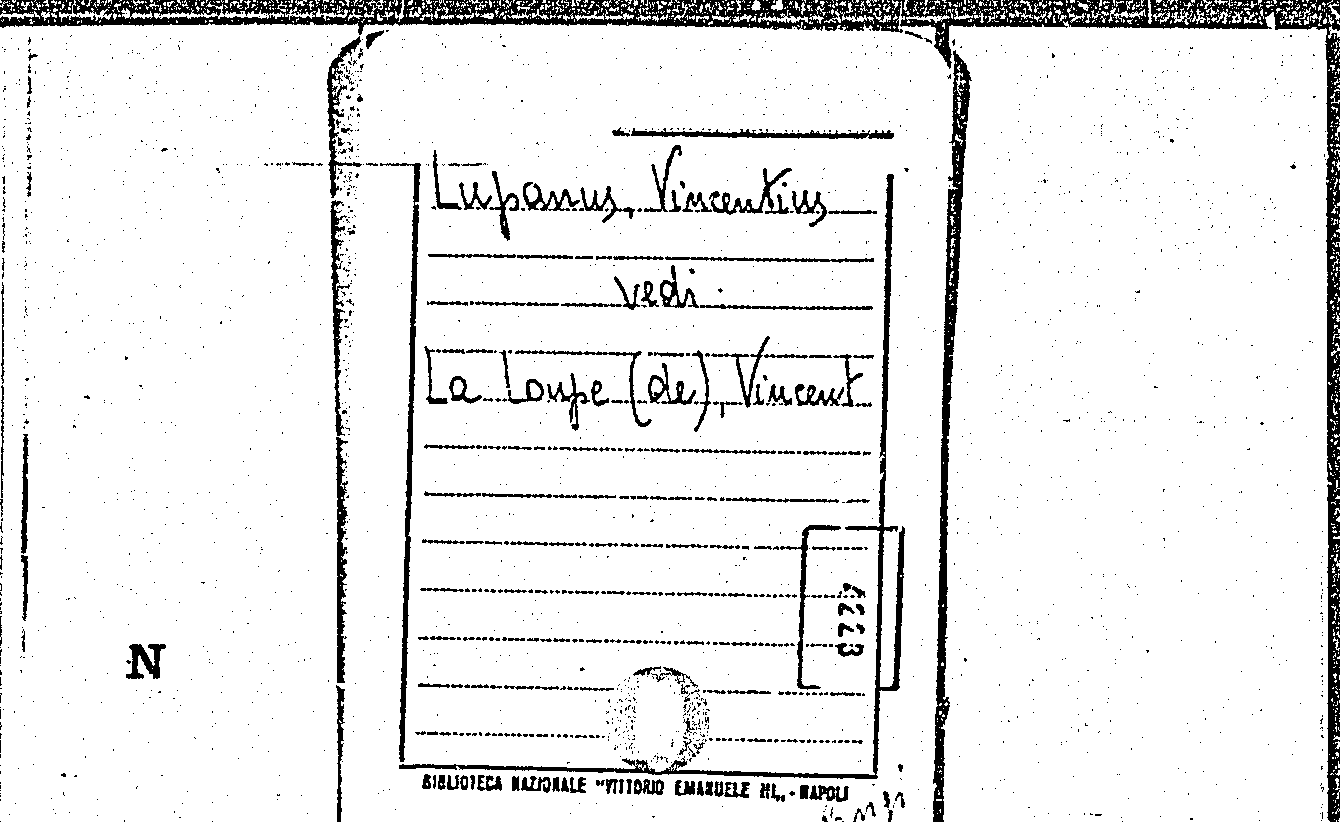 Lupanus, Vincentius
vedi
La Loupe (de), Vincent
4223
N
BIBLIOTECA NAZIONALE "VITTORIO EMANUELE III„ - NAPOLI